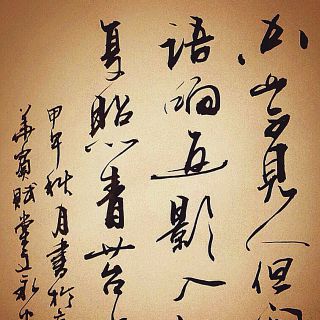 空山不見人但聞
語响返影入
复照青苔
甲午秋月書於
賦堂